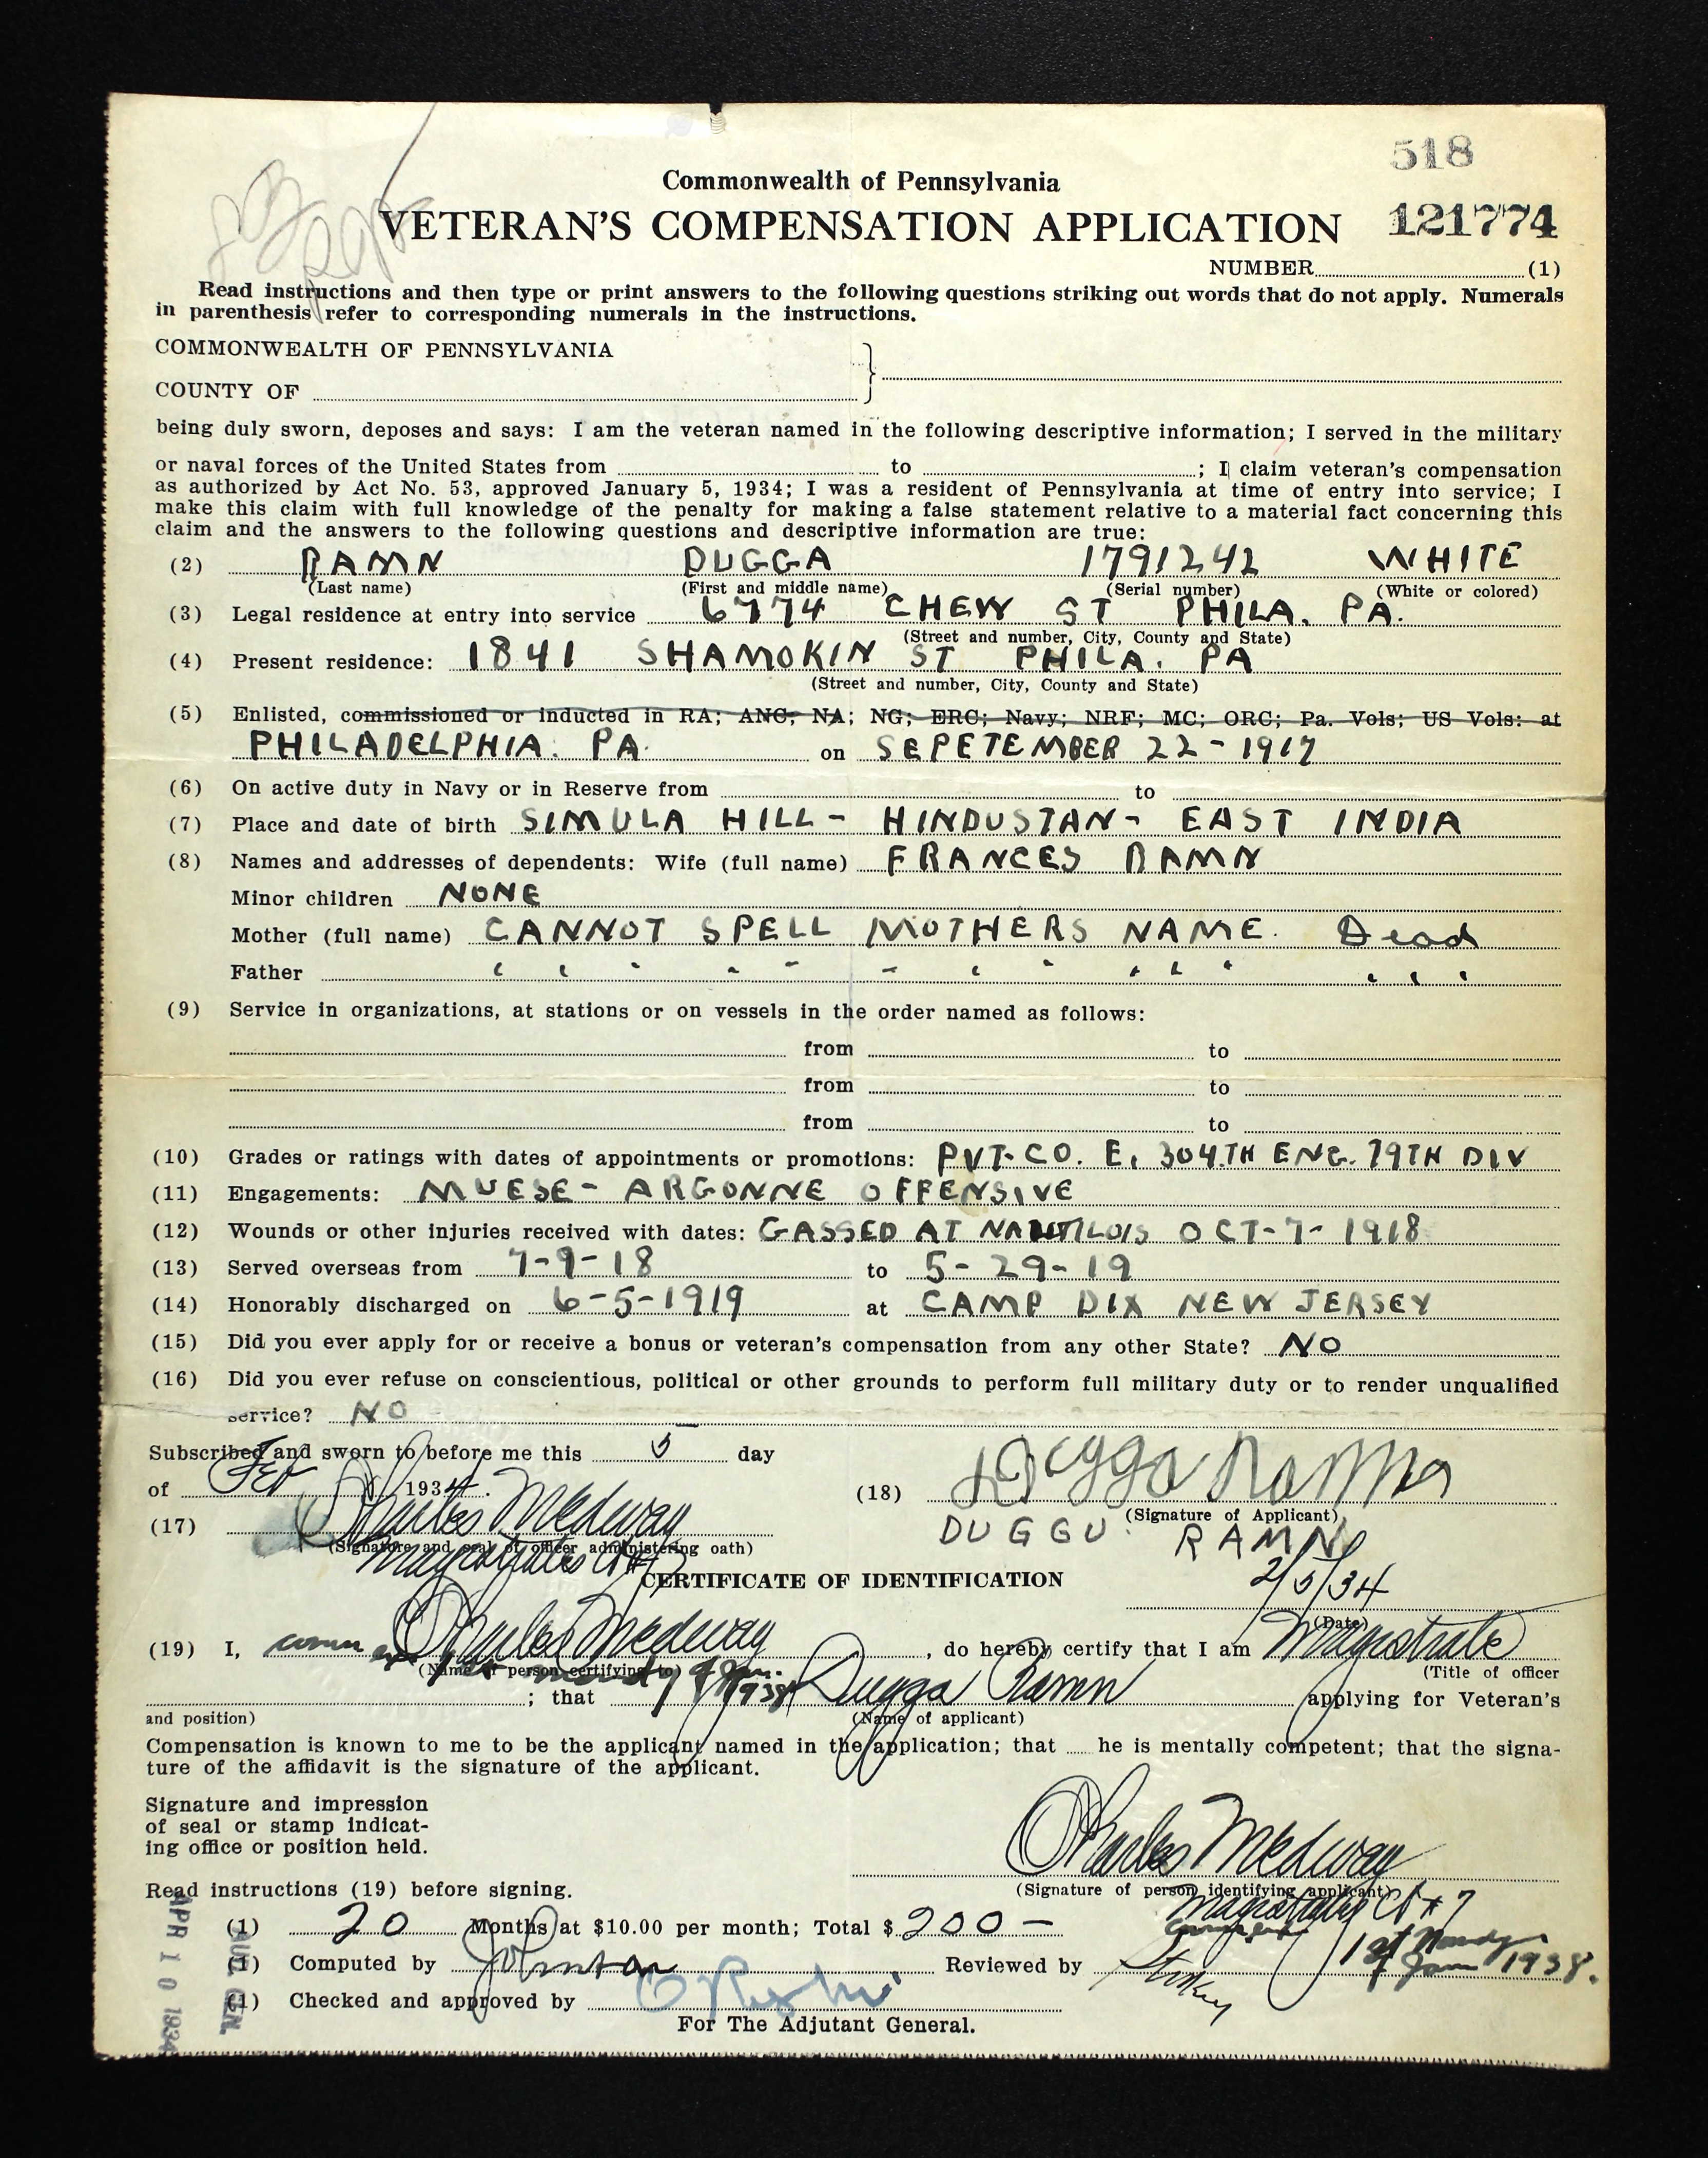 518
Commonwealth of Pennsylvania
VETERAN'S COMPENSATION APPLICATION 121774
NUMBER (1)
Read instructions and then type or print answers to the following questions striking out words that do not apply. Numerals
in parenthesis refer to corresponding numerals in the instructions.
COMMONWEALTH OF PENNSYLVANIA
COUNTY OF
being duly sworn, deposes and says: I am the veteran named in the following descriptive information; I served in the military
or naval forces of the United States from to ; I claim veteran's compensation
as authorized by Act No. 53, approved January 5, 1934; I was a resident of Pennsylvania at time of entry into service; I
make this claim with full knowledge of the penalty for making a false statement relative to a material fact concerning this
claim and the answers to the following questions and descriptive information are true:
(2) RAMN DUGGA 1791242 WHITE
(Last name) (First and middle name) (Serial number) (White or colored)
(3) Legal residence at entry into service 6774 CHEW ST PHILA. PA.
(Street and number, City, County and State)
(4) Present residence: 1841 SHAMOKIN ST PHILA. PA
(Street and number, City, County and State)
(5) Enlisted, commissioned or inducted in RA; ANC; NA; NG; ERC; Navy; NRF; MC; ORC; Pa. Vols; US Vols: at
PHILADELPHIA. PA. on SEPETEMBER 22-1917
(6) On active duty in Navy or in Reserve from to
(7) Place and date of birth SIMULA HILL- HINDUSTAN- EAST INDIA
(8) Names and addresses of dependents: Wife (full name) FRANCES RAMN
Minor children NONE
Mother (full name) CANNOT SPELL MOTHERS NAME. Dead
Father
(9) Service in organizations, at stations or on vessels in the order named as follows:
from to
from to
from to
(10) Grades or ratings with dates of appointments or promotions: PVT-CO. E. 304.TH ENG. 79TH DIV
(11) Engagements: MUESE- ARGONNE OFFENSIVE
(12) Wounds or other injuries received with dates: GASSED AT OCT-7-1918
(13) Served overseas from 7-9-18 to 5-29-19
(14) Honorably discharged on 6-5-1919 at CAMP DIX NEW JERSEY
(15) Did you ever apply for or receive a bonus or veteran's compensation from any other State? NO
(16) Did you ever refuse on conscientious, political or other grounds to perform full military duty or to render unqualified
service? NO
Subscribed and sworn to before me this 5 day
of Feb 1934.
(18) Dugga Ramn
(Signature of Applicant)
DUGGU RAMN
(17) Charles Medway
(Signature and seal of officer administering oath)
Magistrates Ct #7
CERTIFICATE OF IDENTIFICATION 2/5/34
(Date)
(19) I, Charles Medway, do hereby certify that I am Magistrate
(Name of person certifying to) (Title of officer
; that Dugga Ramn applying for Veteran's
and position) (Name of applicant)
Compensation is known to me to be the applicant named in the application; that he is mentally competent; that the signa-
ture of the affidavit is the signature of the applicant.
Signature and impression
of seal or stamp indicat-
ing office or position held.
Charles Medway
Read instructions (19) before signing. (Signature of person identifying applicant)
Magistrates Ct #7
1st Monday
of Jan 1938.
(1) 20 Months at $10.00 per month; Total $ 200—
(1) Computed by Reviewed by
(1) Checked and approved by
For The Adjutant General.
APR 10 1934